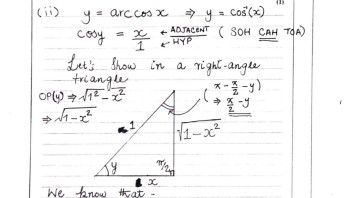 (1)
(ii) y = arc cos x ⇒ y = cos⁻¹(x)
cosy = x/1 ← ADJACENT ← HYP ( SOH CAH TOA)
Let's show in a right-angle
triangle
OP(y) ⇒ √1² - x²
⇒ √1 - x²
(π - π/2 - y)
⇒ π/2 - y
1
√1 - x²
y
π/2
x
We know that -